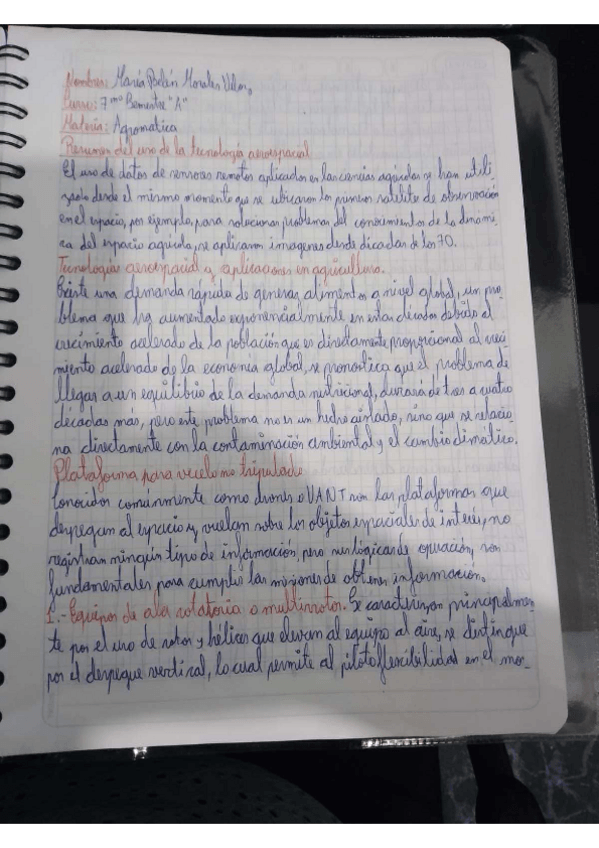 Nombres: María Belén Morales Vélez.
Curso: 7mo Bemestre "A"
Materia: Agromatica
Resumen del uso de la tecnología aeroespacial
El uso de datos de sensores remotos aplicados en las ciencias agrícolas se han utili
zado desde el mismo momento que se ubicaron los primeros satélite de observación
en el espacio, por ejemplo, para solucionar problemas del conocimientos de la dinámi-
ca del espacio agrícola, se aplicaron imagenes desde décadas de los 70.
Tecnologías aeroespacial y aplicaciones en agricultura.
Existe una demanda rápida de generar alimentos a nivel global, un pro
blema que ha aumentado exponencialmente en estas décadas debido al
crecimiento acelerado de la población que es directamente proporcional al creci
miento acelerado de la economía global, se pronostica que el problema de
llegar a un equilibrio de la demanda nutricional, durará de tres a cuatro
décadas más, pero este problema no es un hecho aislado, sino que se relacio
na directamente con la contaminación ambiental y el cambio climático.
Plataforma para vuelo no tripulado
Conocidos comúnmente como drones o VANT son las plataformas que
despegan al espacio y vuelan sobre los objetos espaciales de interés, no
registran ningún tipo de información, pero sus lógicas de operación, son
fundamentales para cumplir las misiones de obtener información.
1.- Equipos de ala rotatoria o multirrotor. Se caracterizan principalmen-
te por el uso de rotor y hélices que elevan al equipo al aire, se distingue
por el despegue vertical, lo cual permite al piloto flexibilidad en el mo-